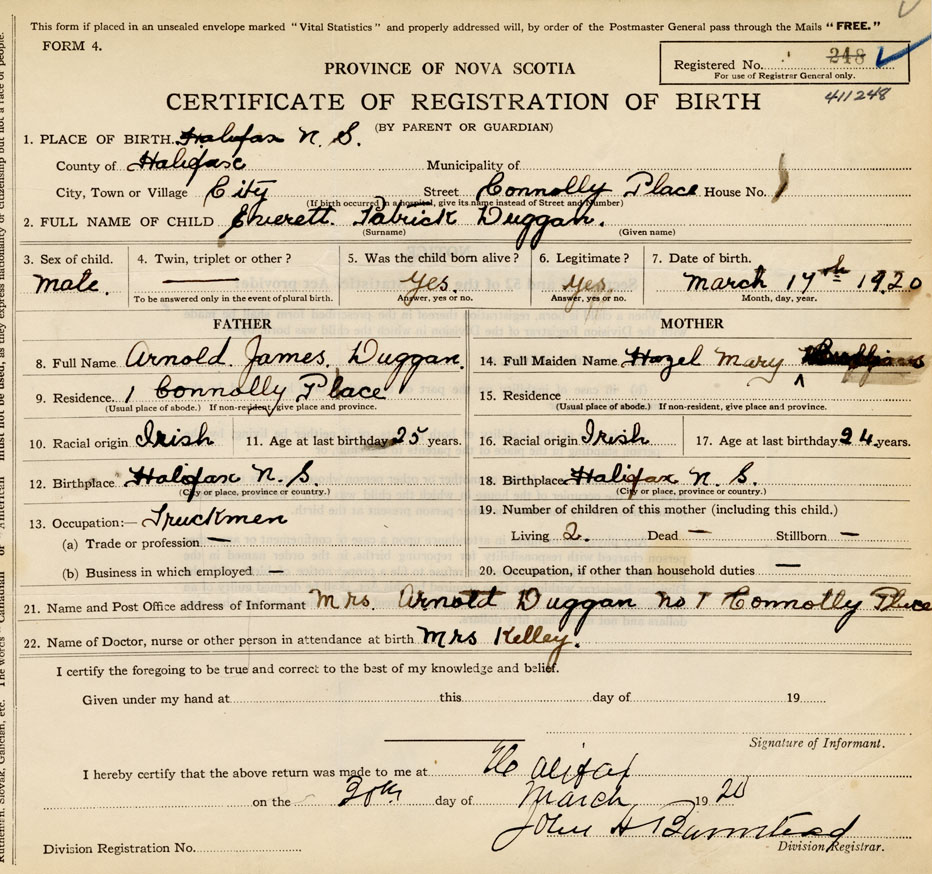 This form if placed in an unsealed envelope marked "Vital Statistics" and properly addressed will, by order of the Postmaster General pass through the Mails "FREE."
FORM 4.
Registered No. 248
For use of Registrar General only.
411248
PROVINCE OF NOVA SCOTIA
CERTIFICATE OF REGISTRATION OF BIRTH
(BY PARENT OR GUARDIAN)
1. PLACE OF BIRTH Halifax N. S.
County of Halifax Municipality of
City, Town or Village City Street Connolly Place House No. 1
(If birth occurred in a hospital, give its name instead of Street and Number)
2. FULL NAME OF CHILD Everett Patrick Duggan.
(Surname) (Given name)
3. Sex of child. 4. Twin, triplet or other? 5. Was the child born alive? 6. Legitimate? 7. Date of birth.
Male. — Yes. Yes. March 17th 1920
To be answered only in the event of plural birth. Answer, yes or no. Answer, yes or no. Month, day, year.
FATHER MOTHER
8. Full Name Arnold James. Duggan. 14. Full Maiden Name Hazel Mary
9. Residence 1 Connolly Place 15. Residence
(Usual place of abode.) If non-resident, give place and province. (Usual place of abode.) If non-resident, give place and province.
10. Racial origin Irish 11. Age at last birthday 25 years. 16. Racial origin Irish 17. Age at last birthday 24 years.
12. Birthplace Halifax N. S. 18. Birthplace Halifax N. S.
(City or place, province or country.) (City or place, province or country.)
13. Occupation:— Truckmen 19. Number of children of this mother (including this child.)
(a) Trade or profession — Living 2. Dead — Stillborn —
(b) Business in which employed — 20. Occupation, if other than household duties —
21. Name and Post Office address of Informant Mrs. Arnold Duggan no 1 Connolly Place
22. Name of Doctor, nurse or other person in attendance at birth Mrs Kelley.
I certify the foregoing to be true and correct to the best of my knowledge and belief.
Given under my hand at this day of 19
Signature of Informant.
I hereby certify that the above return was made to me at Halifax
on the 30th day of March 1920
John H Barnstead
Division Registrar.
Division Registration No.